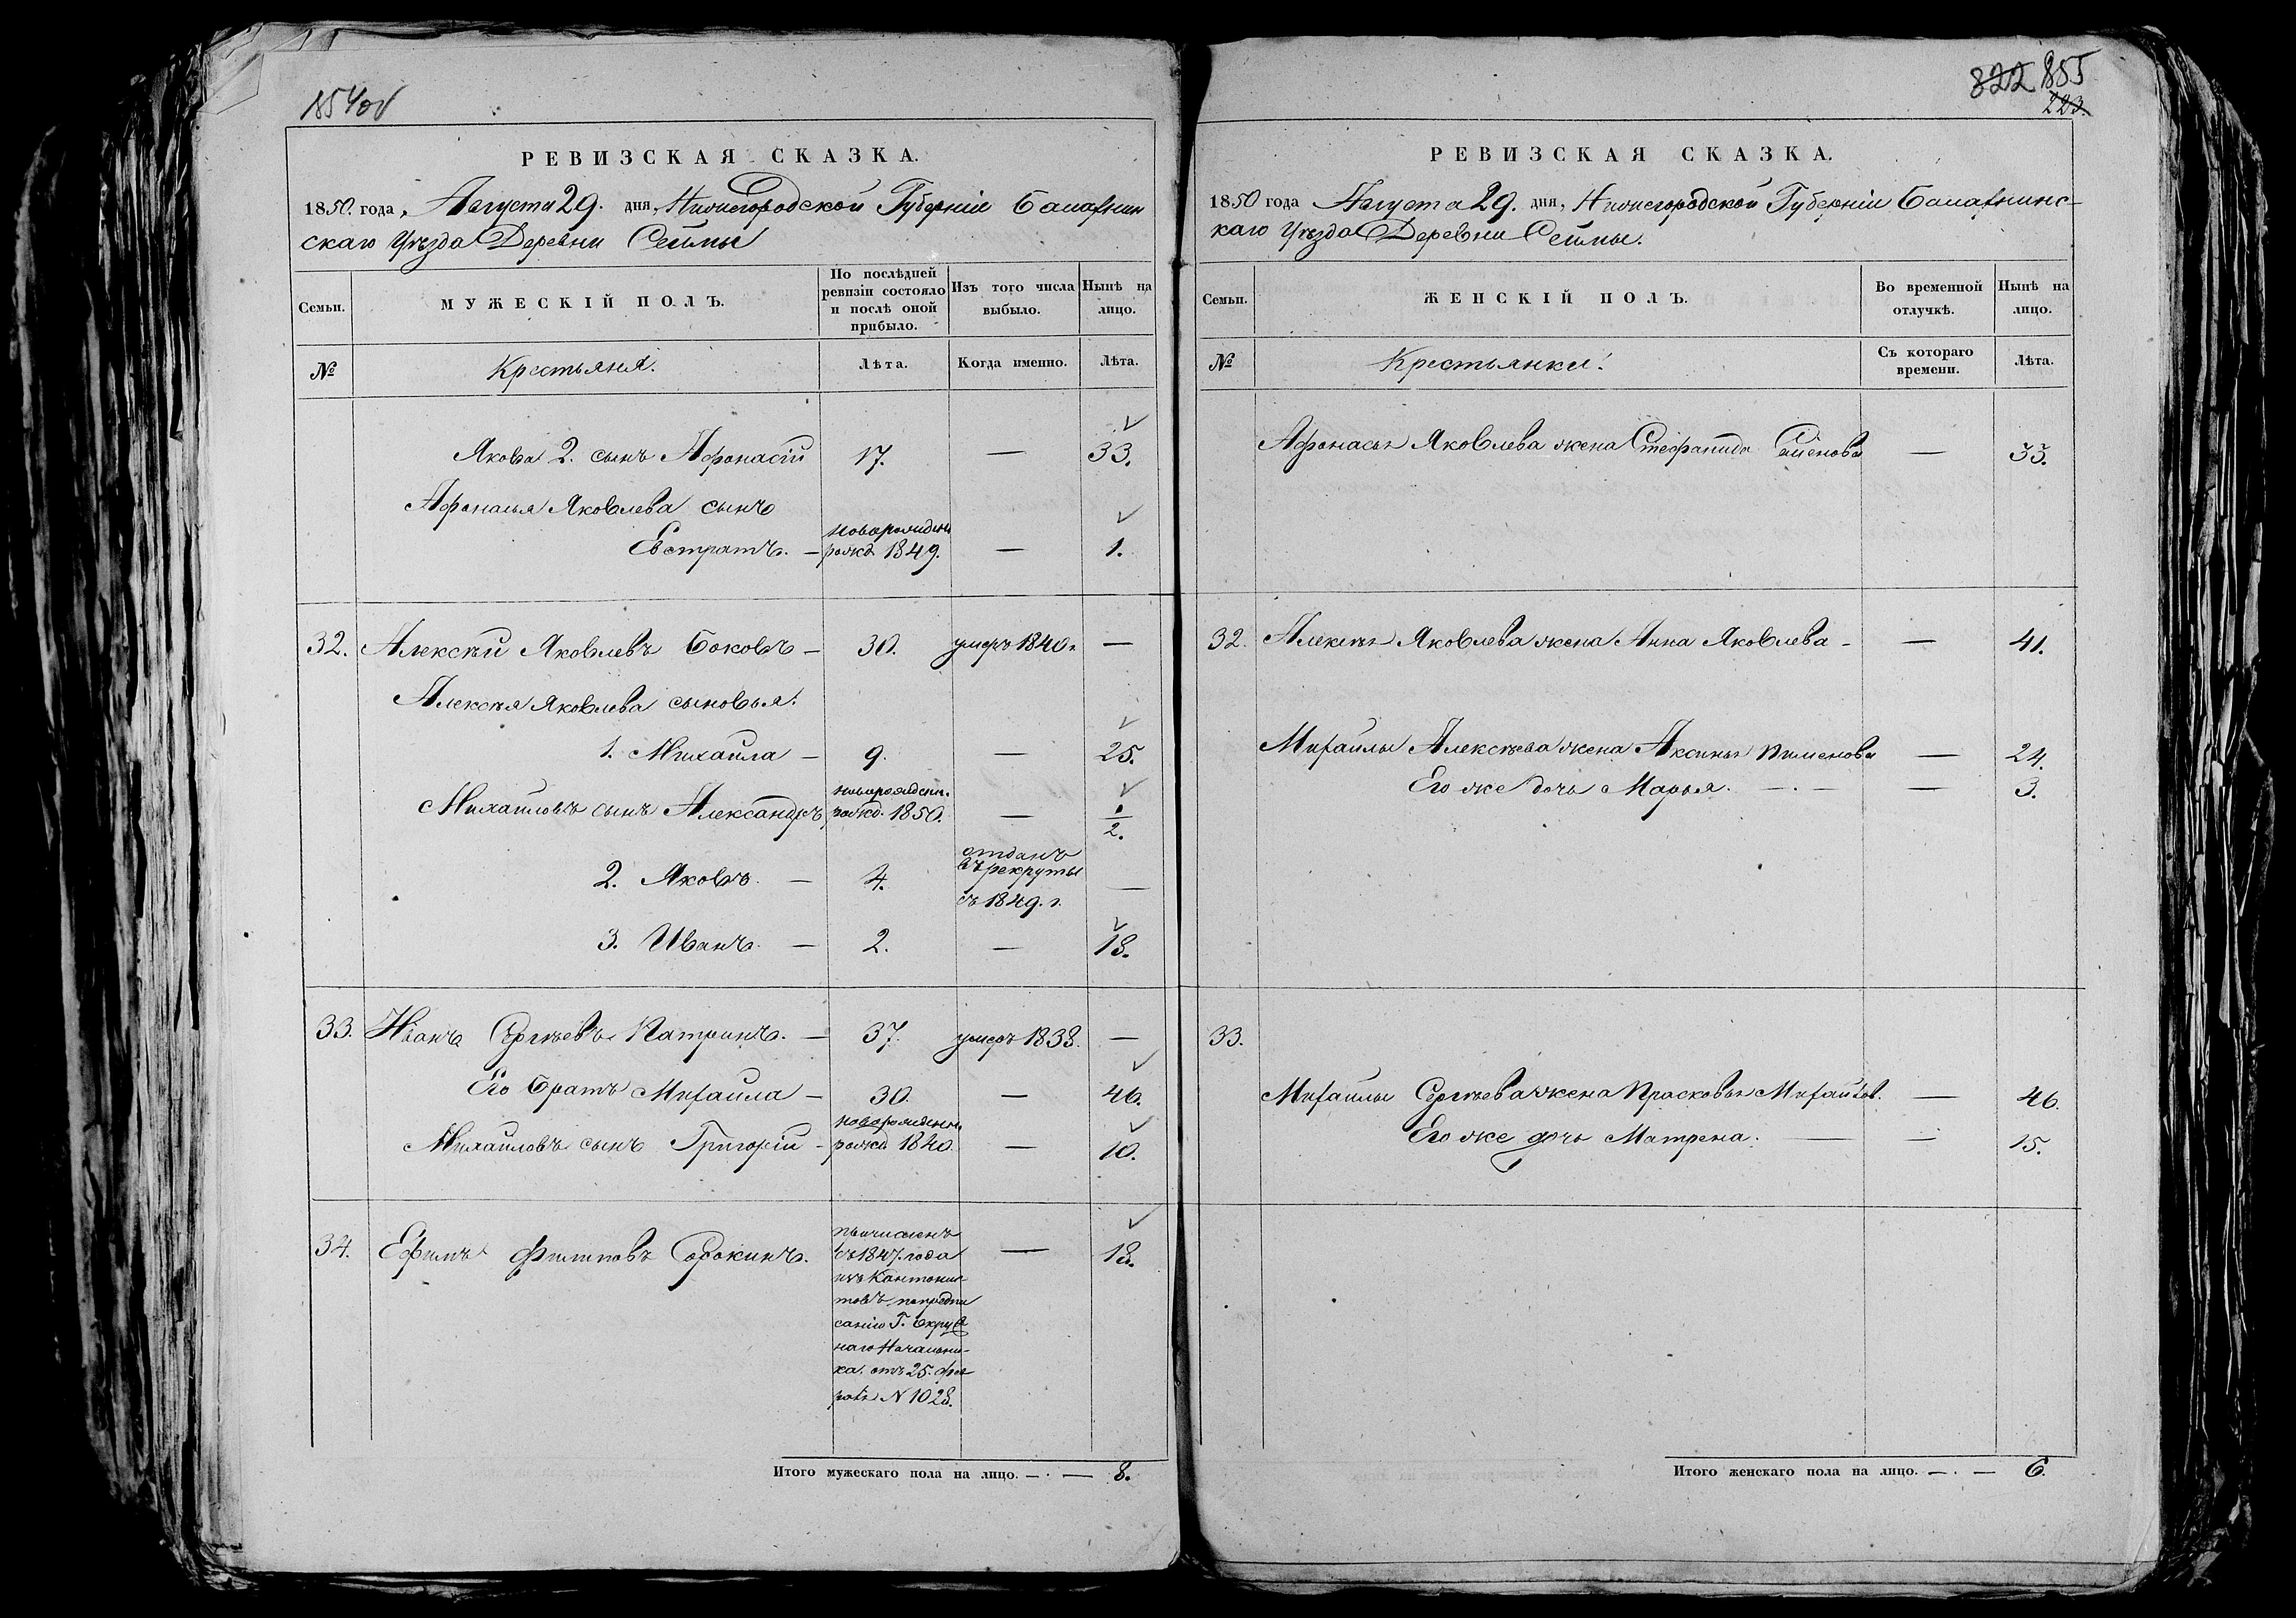 854об
РЕВИЗСКАЯ СКАЗКА.
1850. года, Августа 29. дня, Нижегородской Губерніи Балахнин
скаго Уѣзда Деревни Сеймы
Семьи.
МУЖЕСКІЙ ПОЛЪ.
По послѣдней
ревизіи состояло
и послѣ оной
прибыло.
Изъ того числа
выбыло.
Нынѣ на
лицо.
№
Крестьяня.
Лѣта.
Когда именно.
Лѣта.
Якова 2. сынъ Афонасій 17. — 33.
Афонасья Яковлева сынъ
Евстратъ. — новорожден рожд. 1849. — 1.
32. Алексѣй Яковлевъ Боковъ — 30. умеръ 1840. —
Алексѣя Яковлева сыновья:
1. Михайла — 9. — 25.
Михайловъ сынъ Александръ новорожден. рожд. 1850. — 1/2.
2. Яковъ. — 4. отданъ въ рекруты въ 1849. г. —
3. Иванъ. — 2. — 18.
33. Иванъ Сергѣевъ Патринъ. — 37. умеръ 1838. —
Его братъ Михайла — 30. — 46.
Михайловъ сынъ Григорій — новорожден рожд 1840. — 10.
34. Ефимъ Филиповъ Сорокинъ. — 18.
причисленъ
въ 1847. года
изъ Кантонис
товъ по предпи
санію Г. Окруж
наго Начальни-
ка. отъ 25. Фев
раля N 1028.
Итого мужескаго пола на лицо. — . — 8.
822 855
223.
РЕВИЗСКАЯ СКАЗКА.
1850 года Августа 29. дня, Нижегородской Губерніи Балахнинс-
каго Уѣзда Деревни Сеймы.
Семьи.
ЖЕНСКІЙ ПОЛЪ.
Во временной
отлучкѣ.
Нынѣ на
лицо.
№
Крестьянки:
Съ котораго
времени.
Лѣта.
Афонасья Яковлева жена Стефанида Семенова — 33.
32. Алексѣя Яковлева жена Анна Яковлева - — 41.
Михайлы Алексѣева жена Аксинья Пименова — 24.
Его же дочь Марья. — . — — 3.
33.
Михайлы Сергѣева жена Прасковья Михайлов. — 46.
Его же дочь Матрена. — — 15.
Итого женскаго пола на лицо. — . — 6.